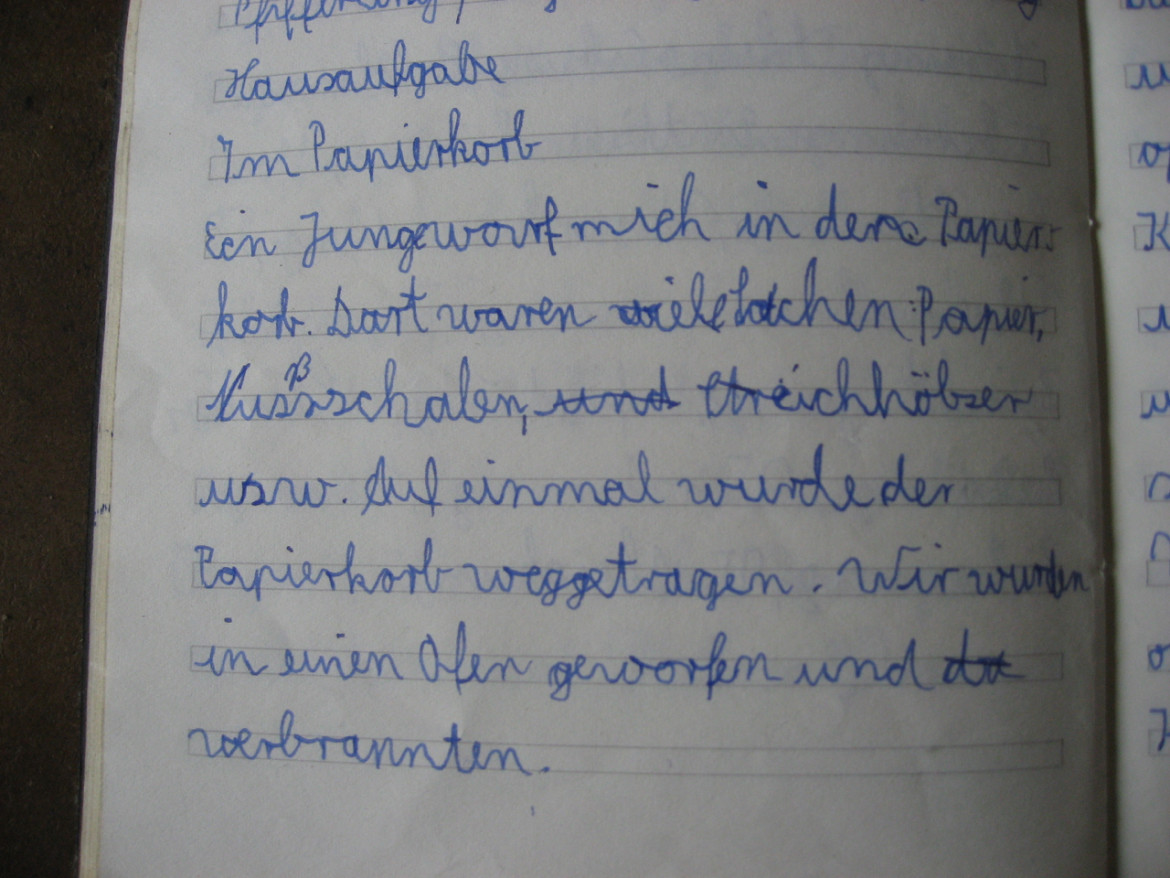 Hausaufgabe
Im Papierkorb
Ein Junge warf mich in den Papier-
korb. Dort waren viele Papier,
Nußschalen, und Streichhölzer
usw. Auf einmal wurde der
Papierkorb weggetragen. Wir wurden
in einen Ofen geworfen und da
verbrannten.